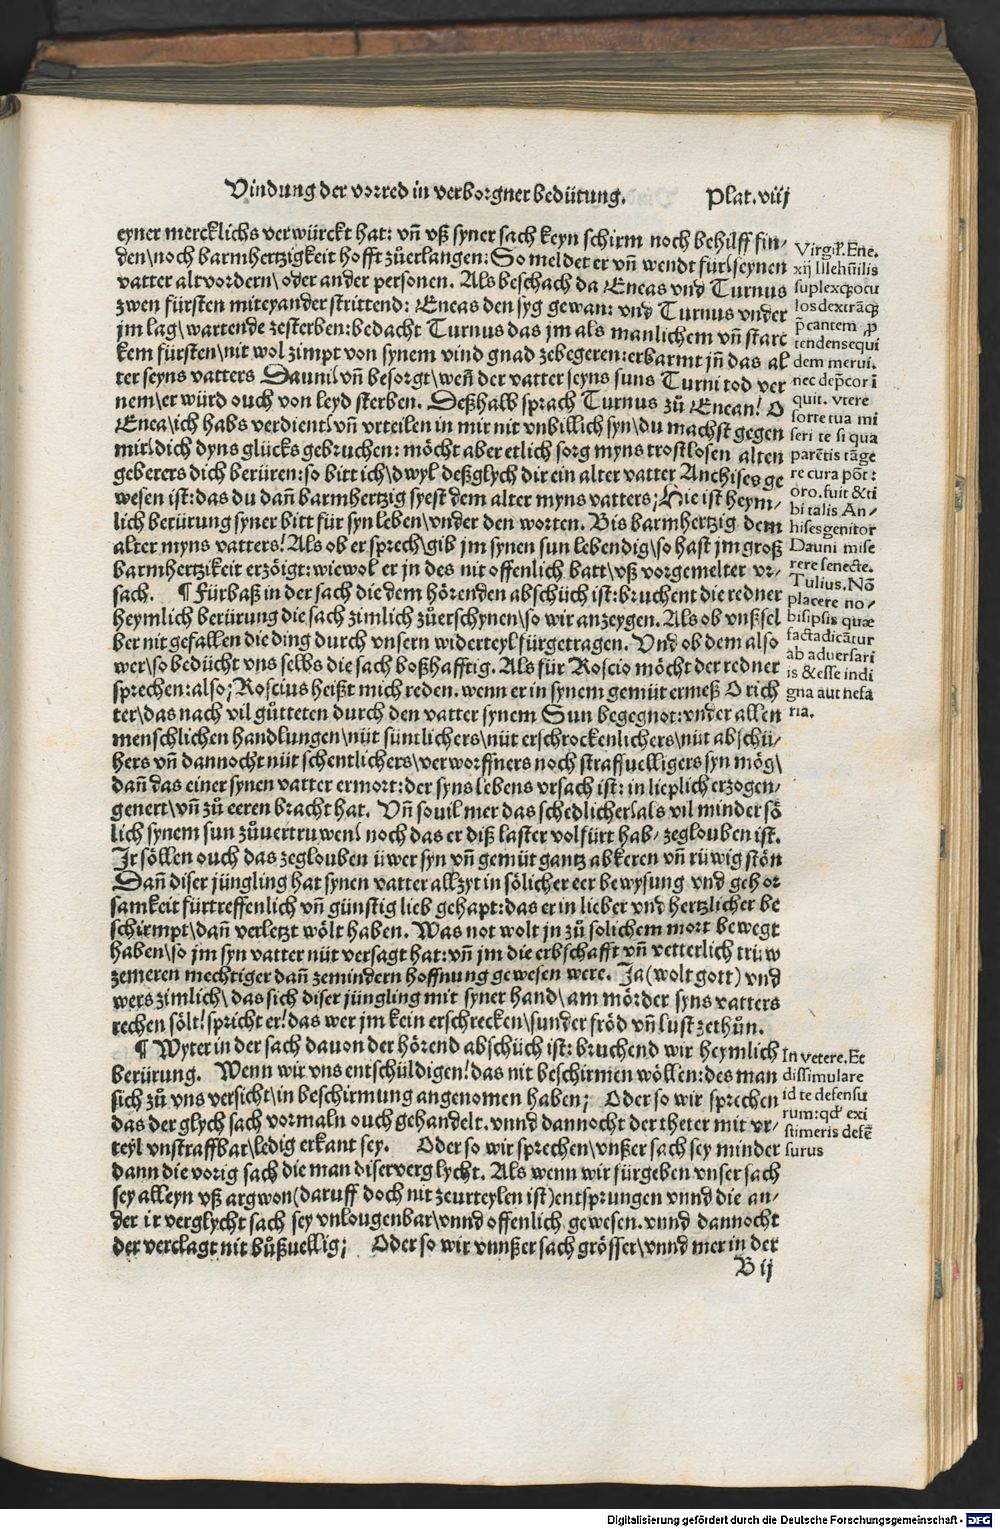 Vindung der vorred in verborgner bedütung. Plat. viij
eyner mercklichs verwürckt hat: vñ vß syner sach keyn schirm noch behilff fin⸗
den\ noch barmhertzigkeit hofft zůerlangen: So meldet er vñ wendt für\ seynen
vatter altvordern\ oder ander personen. Als beschach da Eneas vnd Turnus
zwen fürsten miteyander strittend: Eneas den syg gewan: vnd Turnus vnder
jm lag\ wartende zesterben: bedacht Turnus das jm als manlichem vñ starc
kem fürsten\ nit wol zimpt von synem vind gnad zebegeren: erbarmt jñ das al
ter seyns vatters Dauni\ vñ besorgt\ weñ der vatter seyns suns Turni tod ver
nem\ er würd ouch von leyd sterben. Deßhalb sprach Turnus zů Enean! O
Enea\ ich habs verdient\ vñ vrteilen in mir nit vnbillich syn\ du machst gegen
mir\ dich dyns glücks gebruchen: möcht aber etlich sorg myns trostlosen alten
geberers dich berüren: so bitt ich\ dwyl deßglych dir ein alter vatter Anchises ge
wesen ist: das du dañ barmhertzig syest dem alter myns vatters; Hie ist heym⸗
lich berürung syner bitt für syn leben\ vnder den worten. Bis barmhertzig dem
alter myns vatters! Als ob er sprech\ gib jm synen sun lebendig\ so hast jm groß
barmhertzikeit erzöigt: wiewol er jn des nit offenlich batt\ vß vorgemelter vr⸗
sach. ¶ Fürbaß in der sach die dem hörenden abschüch ist: bruchent die redner
heymlich berürung die sach zimlich zůerschynen\ so wir anzeygen. Als ob vnß sel
ber nit gefallen die ding durch vnsern widerteyl fürgetragen. Vnd ob dem also
wer\ so bedücht vns selbs die sach boßhafftig. Als für Roscio möcht der redner
sprechen: also; Roscius heißt mich reden. wenn er in synem gemüt ermeß O rich
ter\ das nach vil gůtteten durch den vatter synem Sun begegnot: vnder allen
menschlichen handlungen\ nüt süntlichers\ nüt erschrockenlichers\ nüt abschü⸗
hers vñ dannocht nüt schentlichers\ verworffners noch straffuelligers syn mög\
dañ das einer synen vatter ermort: der syns lebens vrsach ist: in lieplich erzogen⸗
genert\ vñ zů eeren bracht hat. Vñ souil mer das schedlicher\ als vil minder sö
lich synem sun zůuertruwen\ noch das er diß laster volfürt hab⸗ zeglouben ist.
Jr söllen ouch das zeglouben üwer syn vñ gemüt gantz abkeren vñ rüwig stön
Dañ diser jüngling hat synen vatter allzyt in sölicher eer bewysung vnd gehor
samkeit fürtreffenlich vñ günstig lieb gehapt: das er in lieber vnd hertzlicher be
schirmpt\ dañ verletzt wölt haben. Was not wolt jn zů solichem mort bewegt
haben\ so jm syn vatter nüt versagt hat: vñ jm die erbschafft vñ vetterlich trüw
zemeren mechtiger dañ zemindern hoffnung gewesen were. Ja (wolt gott) vnd
wers zimlich\ das sich diser jüngling mit syner hand\ am mörder syns vatters
rechen sölt! spricht er! das wer jm kein erschrecken\ sunder fröd vñ lust zethůn.
¶ Wyter in der sach dauon der hörend abschüch ist: bruchend wir heymlich
berürung. Wenn wir vns entschüldigen! das nit beschirmen wöllen: des man
sich zů vns versicht\ in beschirmung angenomen haben; Oder so wir sprechen
das der glych sach vormaln ouch gehandelt. vnnd dannocht der theter mit vr⸗
teyl vnstraffbar\ ledig erkant sey. Oder so wir sprechen\ vnßer sach sey minder
dann die vorig sach die man diser verglycht. Als wenn wir fürgeben vnser sach
sey alleyn vß argwon (daruff doch nit zeurteylen ist) entsprungen vnnd die an⸗
der ir verglycht sach sey vnlougenbar\ vnnd offenlich gewesen. vnnd dannocht
der verclagt nit bůßuellig; Oder so wir vnnßer sach grösser\ vnnd mer in der
B ij
Virgil. Ene.
xij Ille hũilis
suplexqȝ ocu
los dextrãqȝ
p̃cantem ꝓ
tendens equi
dem merui.
nec dep̃cor ĩ
quit. vtere
sorte tua mi
seri te si qua
parẽtis tãge
re cura põt:
oro. fuit & ti
bi talis An⸗
hises genitor
Dauni mise
rere senectę.
Tulius. Nõ
placere no⸗
bis ipsis quæ
facta dicãtur
ab aduersari
is & esse indi
gna aut nefa
ria.
In vetere. Et
dissimulare
id te defensu
rum: qď exi
stimeris defẽ
surus
Digitalisierung gefördert durch die Deutsche Forschungsgemeinschaft - DFG